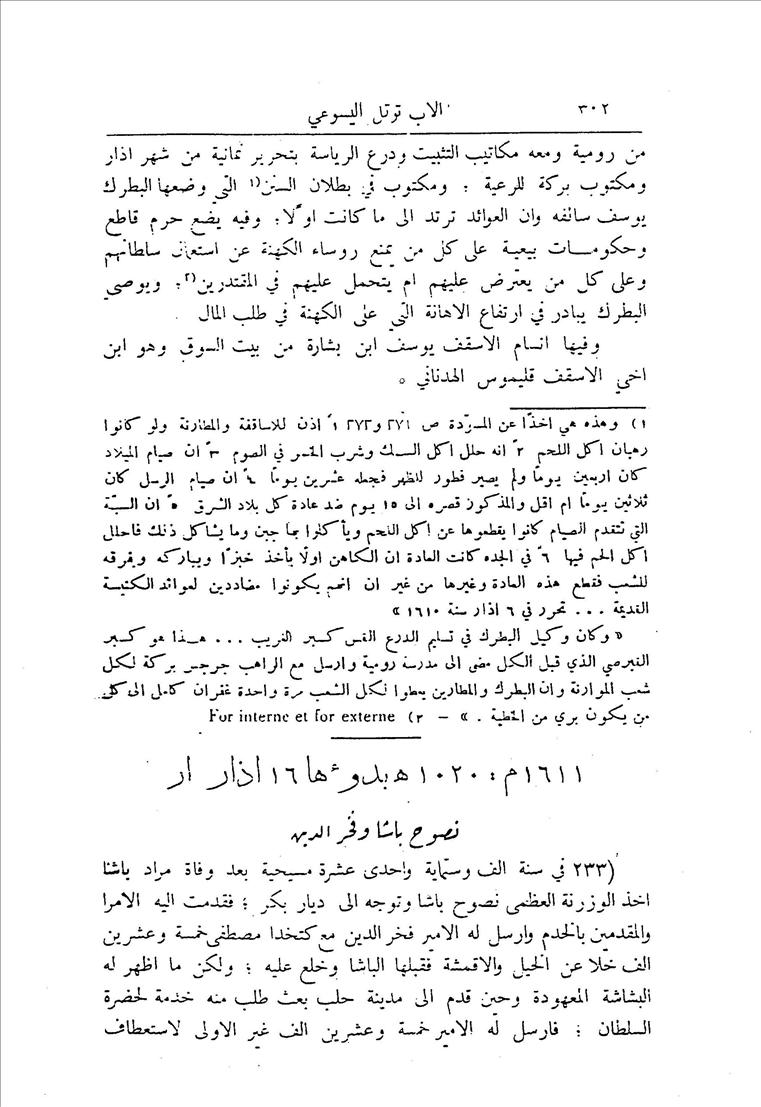 ٣٠٢ الاب توتل اليسوعي
من رومية ومعه مكاتيب التثبيت ودرع الرياسة بتحرير ثمانية من شهر اذار
ومكتوب بركة للرعية ؛ ومكتوب في بطلان السنن(١ التي وضعها البطرك
يوسف سالفه وان العوائد ترتد الى ما كانت اوّلًا؛ وفيه يضع حرم قاطع
وحكومات بيعية على كل من يمنع روساء الكهنة عن استعمال سلطانهم
وعلى كل من يعترض عليهم ام يتحمل عليهم في المقتدرين(٢؛ ويوصي
البطرك يبادر في ارتفاع الاهانة التي على الكهنة في طلب المال .
وفيها انسام الاسقف يوسف ابن بشارة من بيت السوق وهو ابن
اخي الاسقف قليموس الهدناني ٥
١) وهذه هي اخذًا عن المسرّدة ص ٢٧١ و٢٧٢ ١ً اذن للاساقفة والمطارنة ولو كانوا
رهبان اكل اللحم ٢ً انه حلل اكل السمك وشرب الخمر في الصوم ٣ً ان صيام الميلاد
كان اربعين يومًا ولم يصير فطور للظهر فجعله عشرين يومًا ٤ً ان صيام الرسل كان
ثلاثين يومًا ام اقل والمذكور قصره الى ١٥ يوم ضد عادة كل بلاد الشرق ٥ً ان السبّة
التي تتقدم الصيام كانوا يقطعوها عن اكل اللحم ويأكلوا بها جبن وما يشاكل ذلك فاحلل
اكل الحم فيها ٦ً في الجده كانت العادة ان الكاهن اولًا يأخذ خبزًا ويباركه ويفرقه
للشعب فقطع هذه العادة وغيرها من غير ان انهم يكونوا مضاددين لعوائد الكنيسة
القديمة ... تحرر في ٦ اذار سنة ١٦١٠ »
« وكان وكيل البطرك في تسليم الدرع القس كسبر الغريب ... هذا هو كسبر
القبرصي الذي قبل الكل مضى الى مدرسة رومية وارسل مع الراهب جرجس بركة لكل
شعب الموارنة وان البطرك والمطارين يعطوا لكل الشعب مرة واحدة غفران كامل الى كل
من يكون بري من الخطية . » – ٢) For interne et for externe
١٦١١م: ١٠٢٠ ه بدوءها ١٦ اذار ار
نصوح باشا وفخر الدين
(٢٣٣ في سنة الف وستماية واحدى عشرة مسيحية بعد وفاة مراد باشا
اخذ الوزرنة العظمى نصوح باشا وتوجه الى ديار بكر ؛ فقدمت اليه الامرا
والمقدمين بالخدم وارسل له الامير فخر الدين مع كتخدا مصطفى خمسة وعشرين
الف خلا عن الخيل والاقمشة فقبلها الباشا وخلع عليه ؛ ولكن ما اظهر له
البشاشة المعهودة وحين قدم الى مدينة حلب بعث طلب منه خدمة لحضرة
السلطان ؛ فارسل له الامير خمسة وعشرين الف غير الاولى لاستعطاف